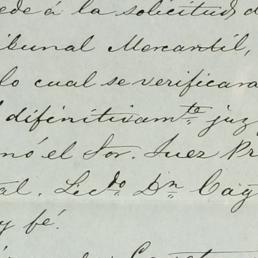 ede á la solicitud d
ribunal Mercantil,
lo cual se verificara
difinitivamte juz
mó el Sor. Juez Pr
tal. Licdo Dn Cay
y fé.